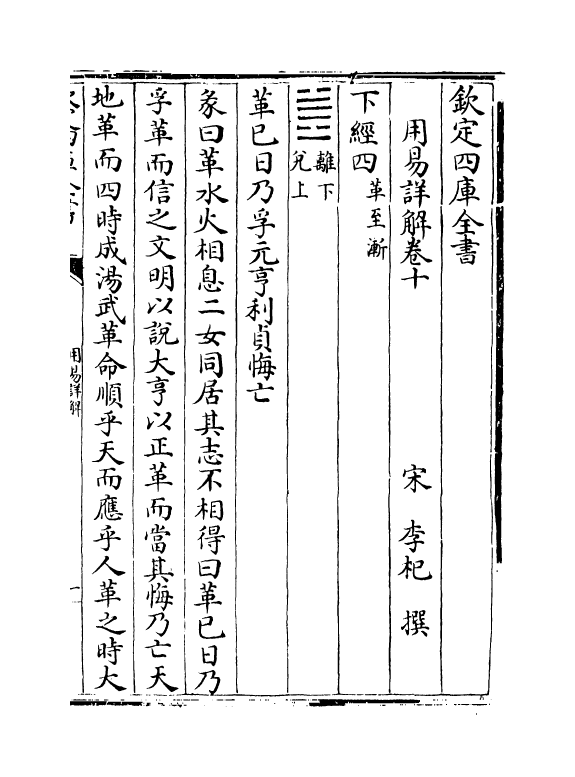 欽定四庫全書
用易詳解卷十
宋 李杞 撰
下經四 革至漸
離下
兌上
革已日乃孚元亨利貞悔亡
彖曰革水火相息二女同居其志不相得曰革已日乃
孚革而信之文明以說大亨以正革而當其悔乃亡天
地革而四時成湯武革命順乎天而應乎人革之時大
用易詳解
一